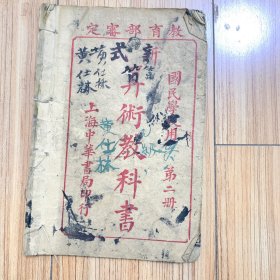 教育部審定
國民學校用
第二冊
新式
算術教科書
上海中華書局印行
黄仕林
黄仕林
黄仕林